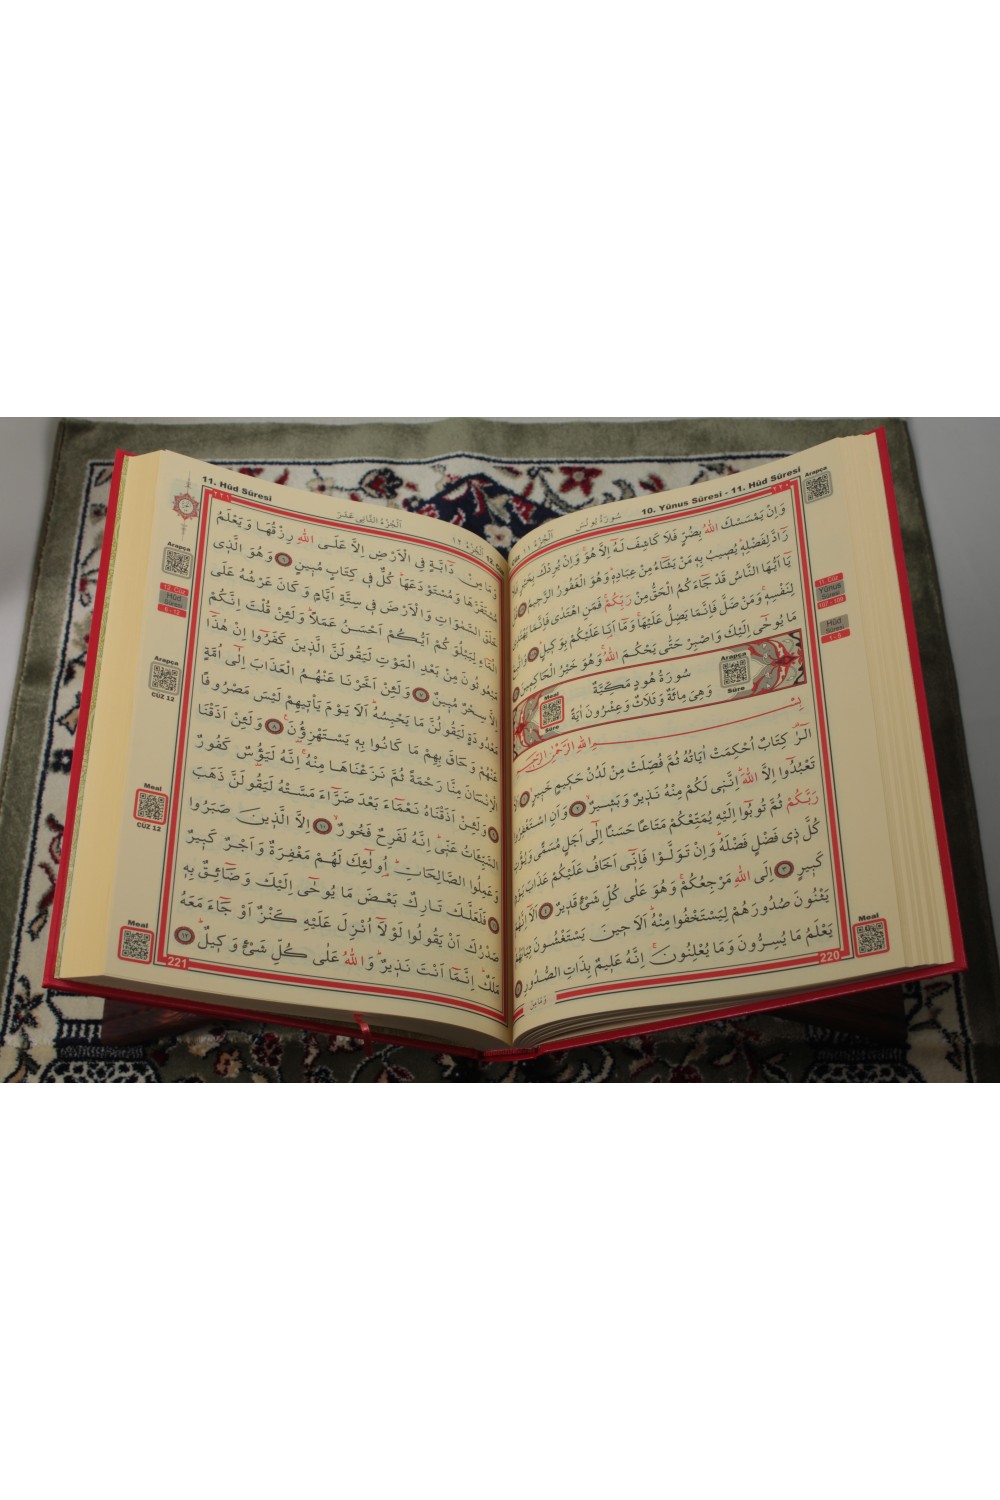 10. Yûnus Sûresi - 11. Hûd Sûresi
٢٢٠
سُورَةُ يُونُسَ
اَلْجُزْءُ ١١
وَاِنْ يَمْسَسْكَ اللّٰهُ بِضُرٍّ فَلَا كَاشِفَ لَهُٓ اِلَّا هُوَۚ وَاِنْ يُرِدْكَ بِخَيْرٍ فَلَا
رَٓادَّ لِفَضْلِه۪ۜ يُص۪يبُ بِه۪ مَنْ يَشَٓاءُ مِنْ عِبَادِه۪ۜ وَهُوَ الْغَفُورُ الرَّح۪يمُ
يَٓا اَيُّهَا النَّاسُ قَدْ جَٓاءَكُمُ الْحَقُّ مِنْ رَبِّكُمْۚ فَمَنِ اهْتَدٰى فَاِنَّمَا يَهْتَد۪ي
لِنَفْسِه۪ۚ وَمَنْ ضَلَّ فَاِنَّمَا يَضِلُّ عَلَيْهَاۚ وَمَٓا اَنَا۬ عَلَيْكُمْ بِوَك۪يلٍۜ
مَا يُوحٰٓى اِلَيْكَ وَاصْبِرْ حَتّٰى يَحْكُمَ اللّٰهُۚ وَهُوَ خَيْرُ الْحَاكِم۪ينَ
سُورَةُ هُودٍ مَكِّيَّةٌ
وَهِيَ مِائَةٌ وَثَلَاثٌ وَعِشْرُونَ اٰيَةً
Arapça
Sûre
Meal
Sûre
بِسْمِ اللّٰهِ الرَّحْمٰنِ الرَّح۪يمِ
الٓرٰ۠ كِتَابٌ اُحْكِمَتْ اٰيَاتُهُ ثُمَّ فُصِّلَتْ مِنْ لَدُنْ حَك۪يمٍ خَب۪يرٍۙ
تَعْبُدُٓوا اِلَّا اللّٰهَۜ اِنَّن۪ي لَكُمْ مِنْهُ نَذ۪يرٌ وَبَش۪يرٌۙ ٢ وَاَنِ اسْتَغْفِرُوا
رَبَّكُمْ ثُمَّ تُوبُٓوا اِلَيْهِ يُمَتِّعْكُمْ مَتَاعاً حَسَناً اِلٰٓى اَجَلٍ مُسَمًّى وَيُؤْتِ
كُلَّ ذ۪ي فَضْلٍ فَضْلَهُۜ وَاِنْ تَوَلَّوْا فَاِنّ۪ٓي اَخَافُ عَلَيْكُمْ عَذَابَ يَوْمٍ
كَب۪يرٍ ٣ اِلَى اللّٰهِ مَرْجِعُكُمْۚ وَهُوَ عَلٰى كُلِّ شَيْءٍ قَد۪يرٌ ٤ اَلَٓا اِنَّهُمْ
يَثْنُونَ صُدُورَهُمْ لِيَسْتَخْفُوا مِنْهُۜ اَلَا ح۪ينَ يَسْتَغْشُونَ ثِيَابَهُمْۙ
يَعْلَمُ مَا يُسِرُّونَ وَمَا يُعْلِنُونَۚ اِنَّهُ عَل۪يمٌ بِذَاتِ الصُّدُورِ
وَمَا مِنْ
220
Arapça
11. Cüz
Yûnus
Sûresi
107 - 109
Hûd
Sûresi
1 - 5
Meal
11. Hûd Sûresi
٢٢١
اَلْجُزْءُ الثَّانِي عَشَرَ
اَلْجُزْءُ ١٢
وَمَا مِنْ دَٓابَّةٍ فِي الْاَرْضِ اِلَّا عَلَى اللّٰهِ رِزْقُهَا وَيَعْلَمُ
مُسْتَقَرَّهَا وَمُسْتَوْدَعَهَاۜ كُلٌّ ف۪ي كِتَابٍ مُب۪ينٍ ٦ وَهُوَ الَّذ۪ي
خَلَقَ السَّمٰوَاتِ وَالْاَرْضَ ف۪ي سِتَّةِ اَيَّامٍ وَكَانَ عَرْشُهُ عَلَى
الْمَٓاءِ لِيَبْلُوَكُمْ اَيُّكُمْ اَحْسَنُ عَمَلاًۜ وَلَئِنْ قُلْتَ اِنَّكُمْ
مَبْعُوثُونَ مِنْ بَعْدِ الْمَوْتِ لَيَقُولَنَّ الَّذ۪ينَ كَفَرُٓوا اِنْ هٰذَٓا
اِلَّا سِحْرٌ مُب۪ينٌ ٧ وَلَئِنْ اَخَّرْنَا عَنْهُمُ الْعَذَابَ اِلٰٓى اُمَّةٍ
مَعْدُودَةٍ لَيَقُولُنَّ مَا يَحْبِسُهُۜ اَلَا يَوْمَ يَأْت۪يهِمْ لَيْسَ مَصْرُوفاً
عَنْهُمْ وَحَاقَ بِهِمْ مَا كَانُوا بِه۪ يَسْتَهْزِؤُ۫نَ۟ ٨ وَلَئِنْ اَذَقْنَا
الْاِنْسَانَ مِنَّا رَحْمَةً ثُمَّ نَزَعْنَاهَا مِنْهُۚ اِنَّهُ لَيَؤُ۫سٌ كَفُورٌ
٩ وَلَئِنْ اَذَقْنَاهُ نَعْمَٓاءَ بَعْدَ ضَرَّٓاءَ مَسَّتْهُ لَيَقُولَنَّ ذَهَبَ
السَّيِّـَٔاتُ عَنّ۪يۜ اِنَّهُ لَفَرِحٌ فَخُورٌۙ ١٠ اِلَّا الَّذ۪ينَ صَبَرُوا
وَعَمِلُوا الصَّالِحَاتِۜ اُو۬لٰٓئِكَ لَهُمْ مَغْفِرَةٌ وَاَجْرٌ كَب۪يرٌ
١١ فَلَعَلَّكَ تَارِكٌ بَعْضَ مَا يُوحٰٓى اِلَيْكَ وَضَٓائِقٌ بِه۪
صَدْرُكَ اَنْ يَقُولُوا لَوْلَٓا اُنْزِلَ عَلَيْهِ كَنْزٌ اَوْ جَٓاءَ مَعَهُ
مَلَكٌۜ اِنَّمَٓا اَنْتَ نَذ۪يرٌۜ وَاللّٰهُ عَلٰى كُلِّ شَيْءٍ وَك۪يلٌۜ ١٢
221
Arapça
12. Cüz
Hûd
Sûresi
6 - 12
Arapça
CÜZ 12
Meal
CÜZ 12
Meal